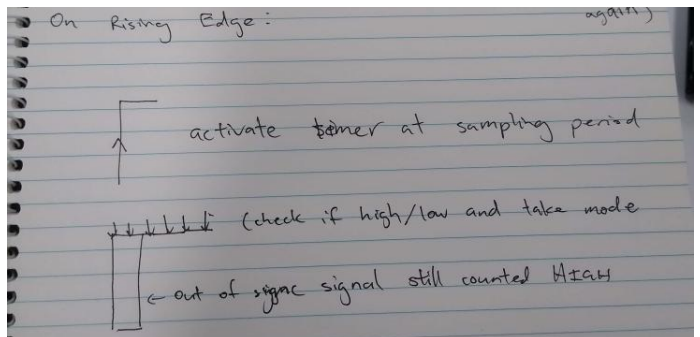 On Rising Edge:
again)
activate timer at sampling period
(check if high/low and take mode
← out of sync signal still counted HIGH